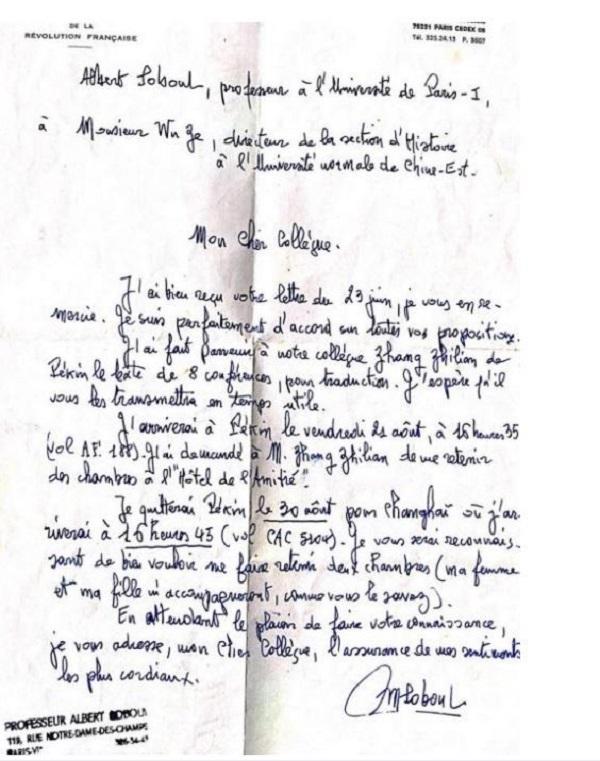 DE LA
RÉVOLUTION FRANÇAISE
75231 PARIS CEDEX 05
Tél. 325.24.13 P. 3607
Albert Soboul, professeur à l'Université de Paris-I,
à Monsieur Wu Ze, directeur de la section d'Histoire
à l'Université normale de Chine-Est.
Mon cher Collègue.
J'ai bien reçu votre lettre du 23 juin, je vous en re-
mercie. Je suis parfaitement d'accord sur toutes vos propositions.
J'ai fait parvenir à notre collègue Zhang Zhilian de
Pékin le texte de 8 conférences, pour traduction. J'espère qu'il
vous les transmettra en temps utile.
J'arriverai à Pékin le vendredi 21 août, à 16 heures 35
(vol AF. ). J'ai demandé à M. Zhang Zhilian de me retenir
des chambres à l'"Hôtel de l'Amitié".
Je quitterai Pékin le 30 août pour Changhaï où j'ar-
riverai à 16 heures 45 (vol CAC ). Je vous serai reconnais-
sant de bien vouloir me faire retenir deux chambres (ma femme
et ma fille m'accompagneront, comme vous le savez).
En attendant le plaisir de faire votre connaissance,
je vous adresse, mon cher Collègue, l'assurance de mes sentiments
les plus cordiaux.
Soboul
PROFESSEUR ALBERT SOBOUL
118, RUE NOTRE-DAME-DES-CHAMPS
PARIS-VIᵉ